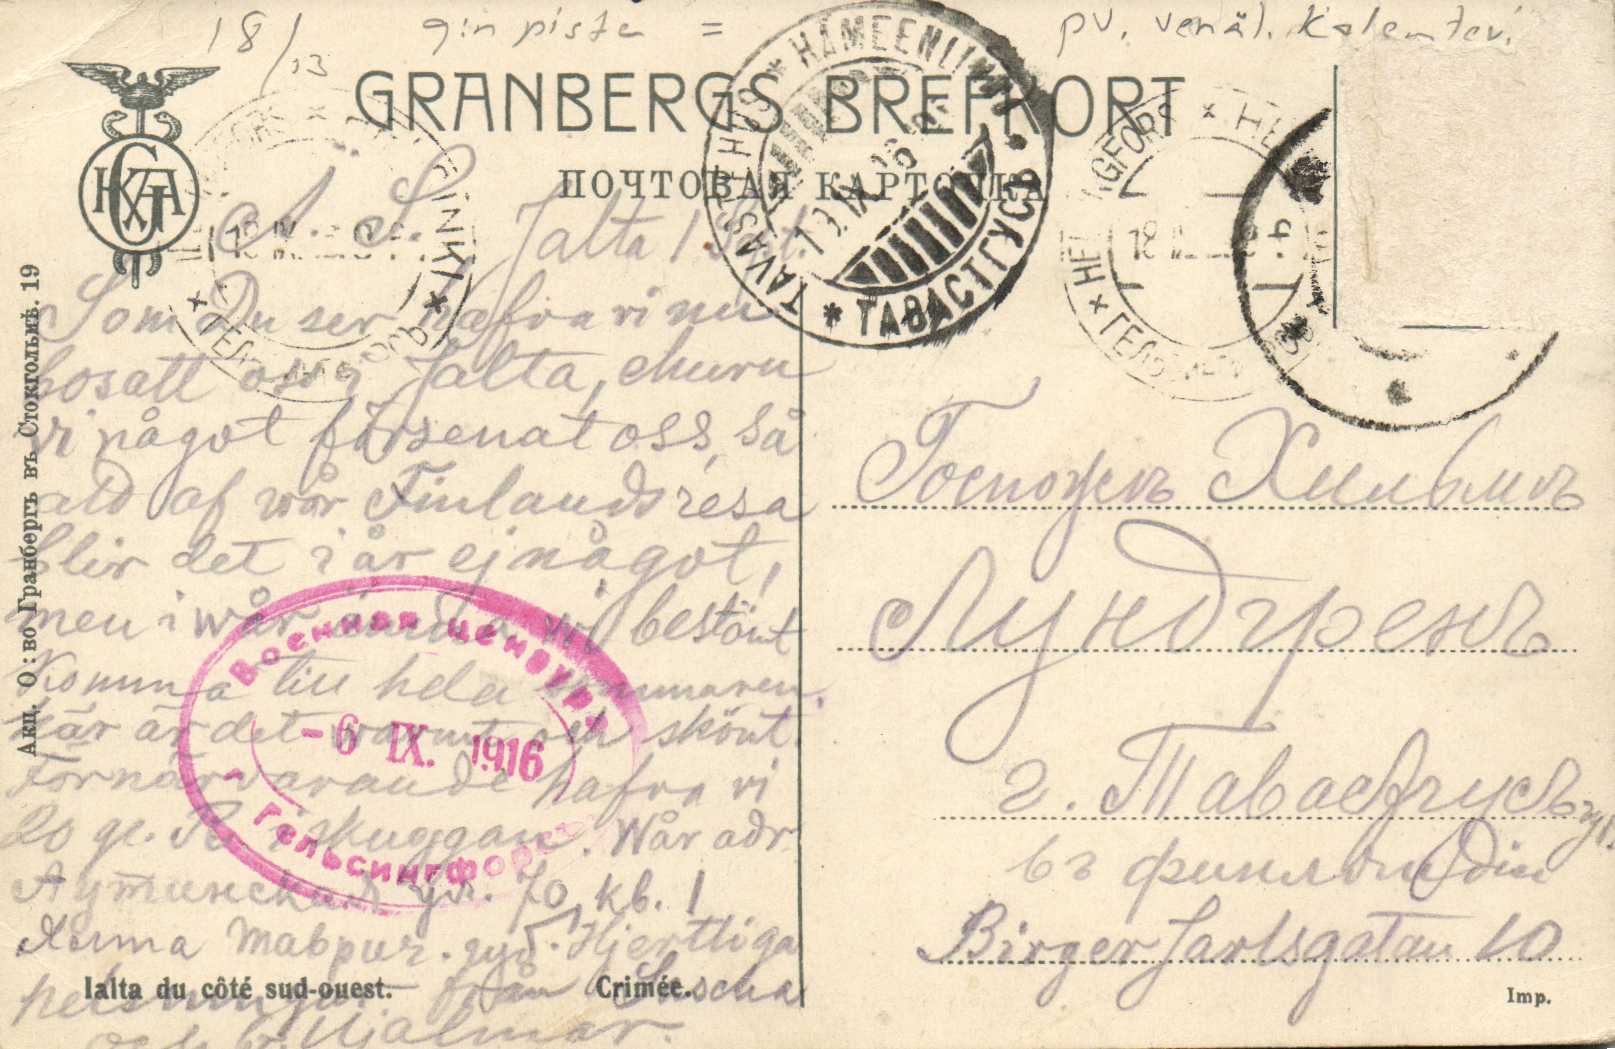 18/13 9:n pista = pv. venäl. Kalenteri
GRANBERGS BREFKORT
ПОЧТОВАЯ КАРТОЧКА
TAVASTEHUS * HÄMEENLINNA
13.IX.16
* ТАВАСТГУСЪ
HELSINGFORS * HELSINKI * ГЕЛЬСИНГФОРСЪ *
HELSINGFORS * HELSINKI * ГЕЛЬСИНГФОРСЪ *
Акц. О:во Гранбергъ въ Стокгольмѣ. 19
Ä. S. Jalta 1 Sept.
Som Du ser hafva vi nu
bosatt oss i Jalta, ehuru
vi något försenat oss, så
att af vår Finlands resa
blir det i år ej något,
men i vår ämna vi bestämt
komma till hela sommaren.
Här är det varmt och skönt.
Förnärvarande hafva vi
20 gr. R. i skuggan. Vår adr.
Аутинская ул. 70, кв. 1
Ялта Таврич. губ. Hjertliga
helsningar från
och br. Hjalmar.
Военная цензура
-6 IX. 1916
Гельсингфорсъ
Госпожѣ Хильмѣ
Лундгренъ
г. Тавастгусъ
въ Финляндіи
Birger Jarlsgatan 10
Ialta du côté sud-ouest. Crimée.
Imp.